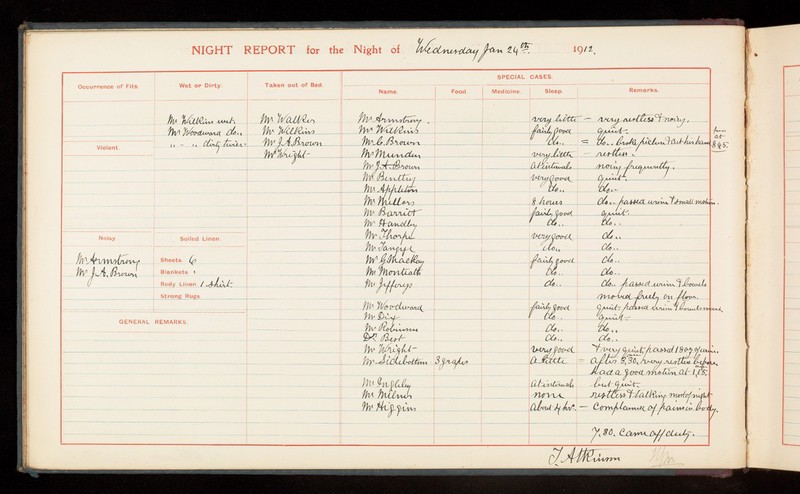 NIGHT REPORT for the Night of Wednesday Jan 24th 1912.
SPECIAL CASES.
Occurrence of Fits. Wet or Dirty. Taken out of Bed. Name. Food. Medicine. Sleep. Remarks.
Mr Wilkins wet. Mr Walker Mr Armstrong. very little – very restless & noisy.
Mr Woodward do.. Mr Wilkins Mr Wilkins fairly good quiet.
" " " dirty twice. Mr J.A. Brown Mr C. Brown do.. = do.. broke picture & cut her hand from at 8 & 5.
Violent. Mr Wright Mr Munden very little – restless.
Mr J.A. Brown at intervals noisy frequently.
Mr Bentley very good quiet.
Mr Appleton do.. do..
Mr Mellors 8 hours do.. passed urine & small motion.
Mr Barrict fairly good quiet.
Mr Handley do.. do..
Noisy. Soiled Linen. Mr Thorpe very good do..
Mr Armstrong Mr Tangye do.. do..
Mr J.A. Brown Sheets 6 Mr G. Mackay fairly good do..
Blankets 1 Mr Monteath do.. do..
Body Linen 1 Shirt. Mr Jefferys do.. do.. passed urine & bowels
Strong Rugs moved freely on floor.
Mr Woodward fairly good quiet. passed urine & bowels moved
GENERAL REMARKS. Mr Dix do.. quiet.
Mr Robinson do.. do..
Dr Best do.. do..
Mr Wright very good & very quiet, passed 18 oz of urine.
Mr Sidebottom 3 grapes a little = after 8,30, very restless before
had a good motion at 1,15.
Mr Ingleby at intervals but quiet.
Mr Milner none restless & talking most of night
Mr Higgins about 4 hrs. – complained of pains in body.
7.80. Came off duty.
J. Atkinson